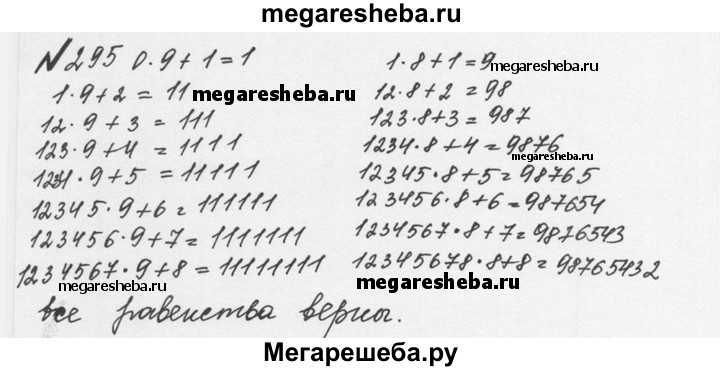 megaresheba.ru
№295 0·9+1=1
1·9+2=11
12·9+3=111
123·9+4=1111
1234·9+5=11111
12345·9+6=111111
123456·9+7=1111111
1234567·9+8=11111111
1·8+1=9
12·8+2=98
123·8+3=987
1234·8+4=9876
12345·8+5=98765
123456·8+6=987654
1234567·8+7=9876543
12345678·8+8=98765432
megaresheba.ru
megaresheba.ru
megaresheba.ru
megaresheba.ru
megaresheba.ru
megaresheba.ru
все равенства верны.
Мегарешеба.ру